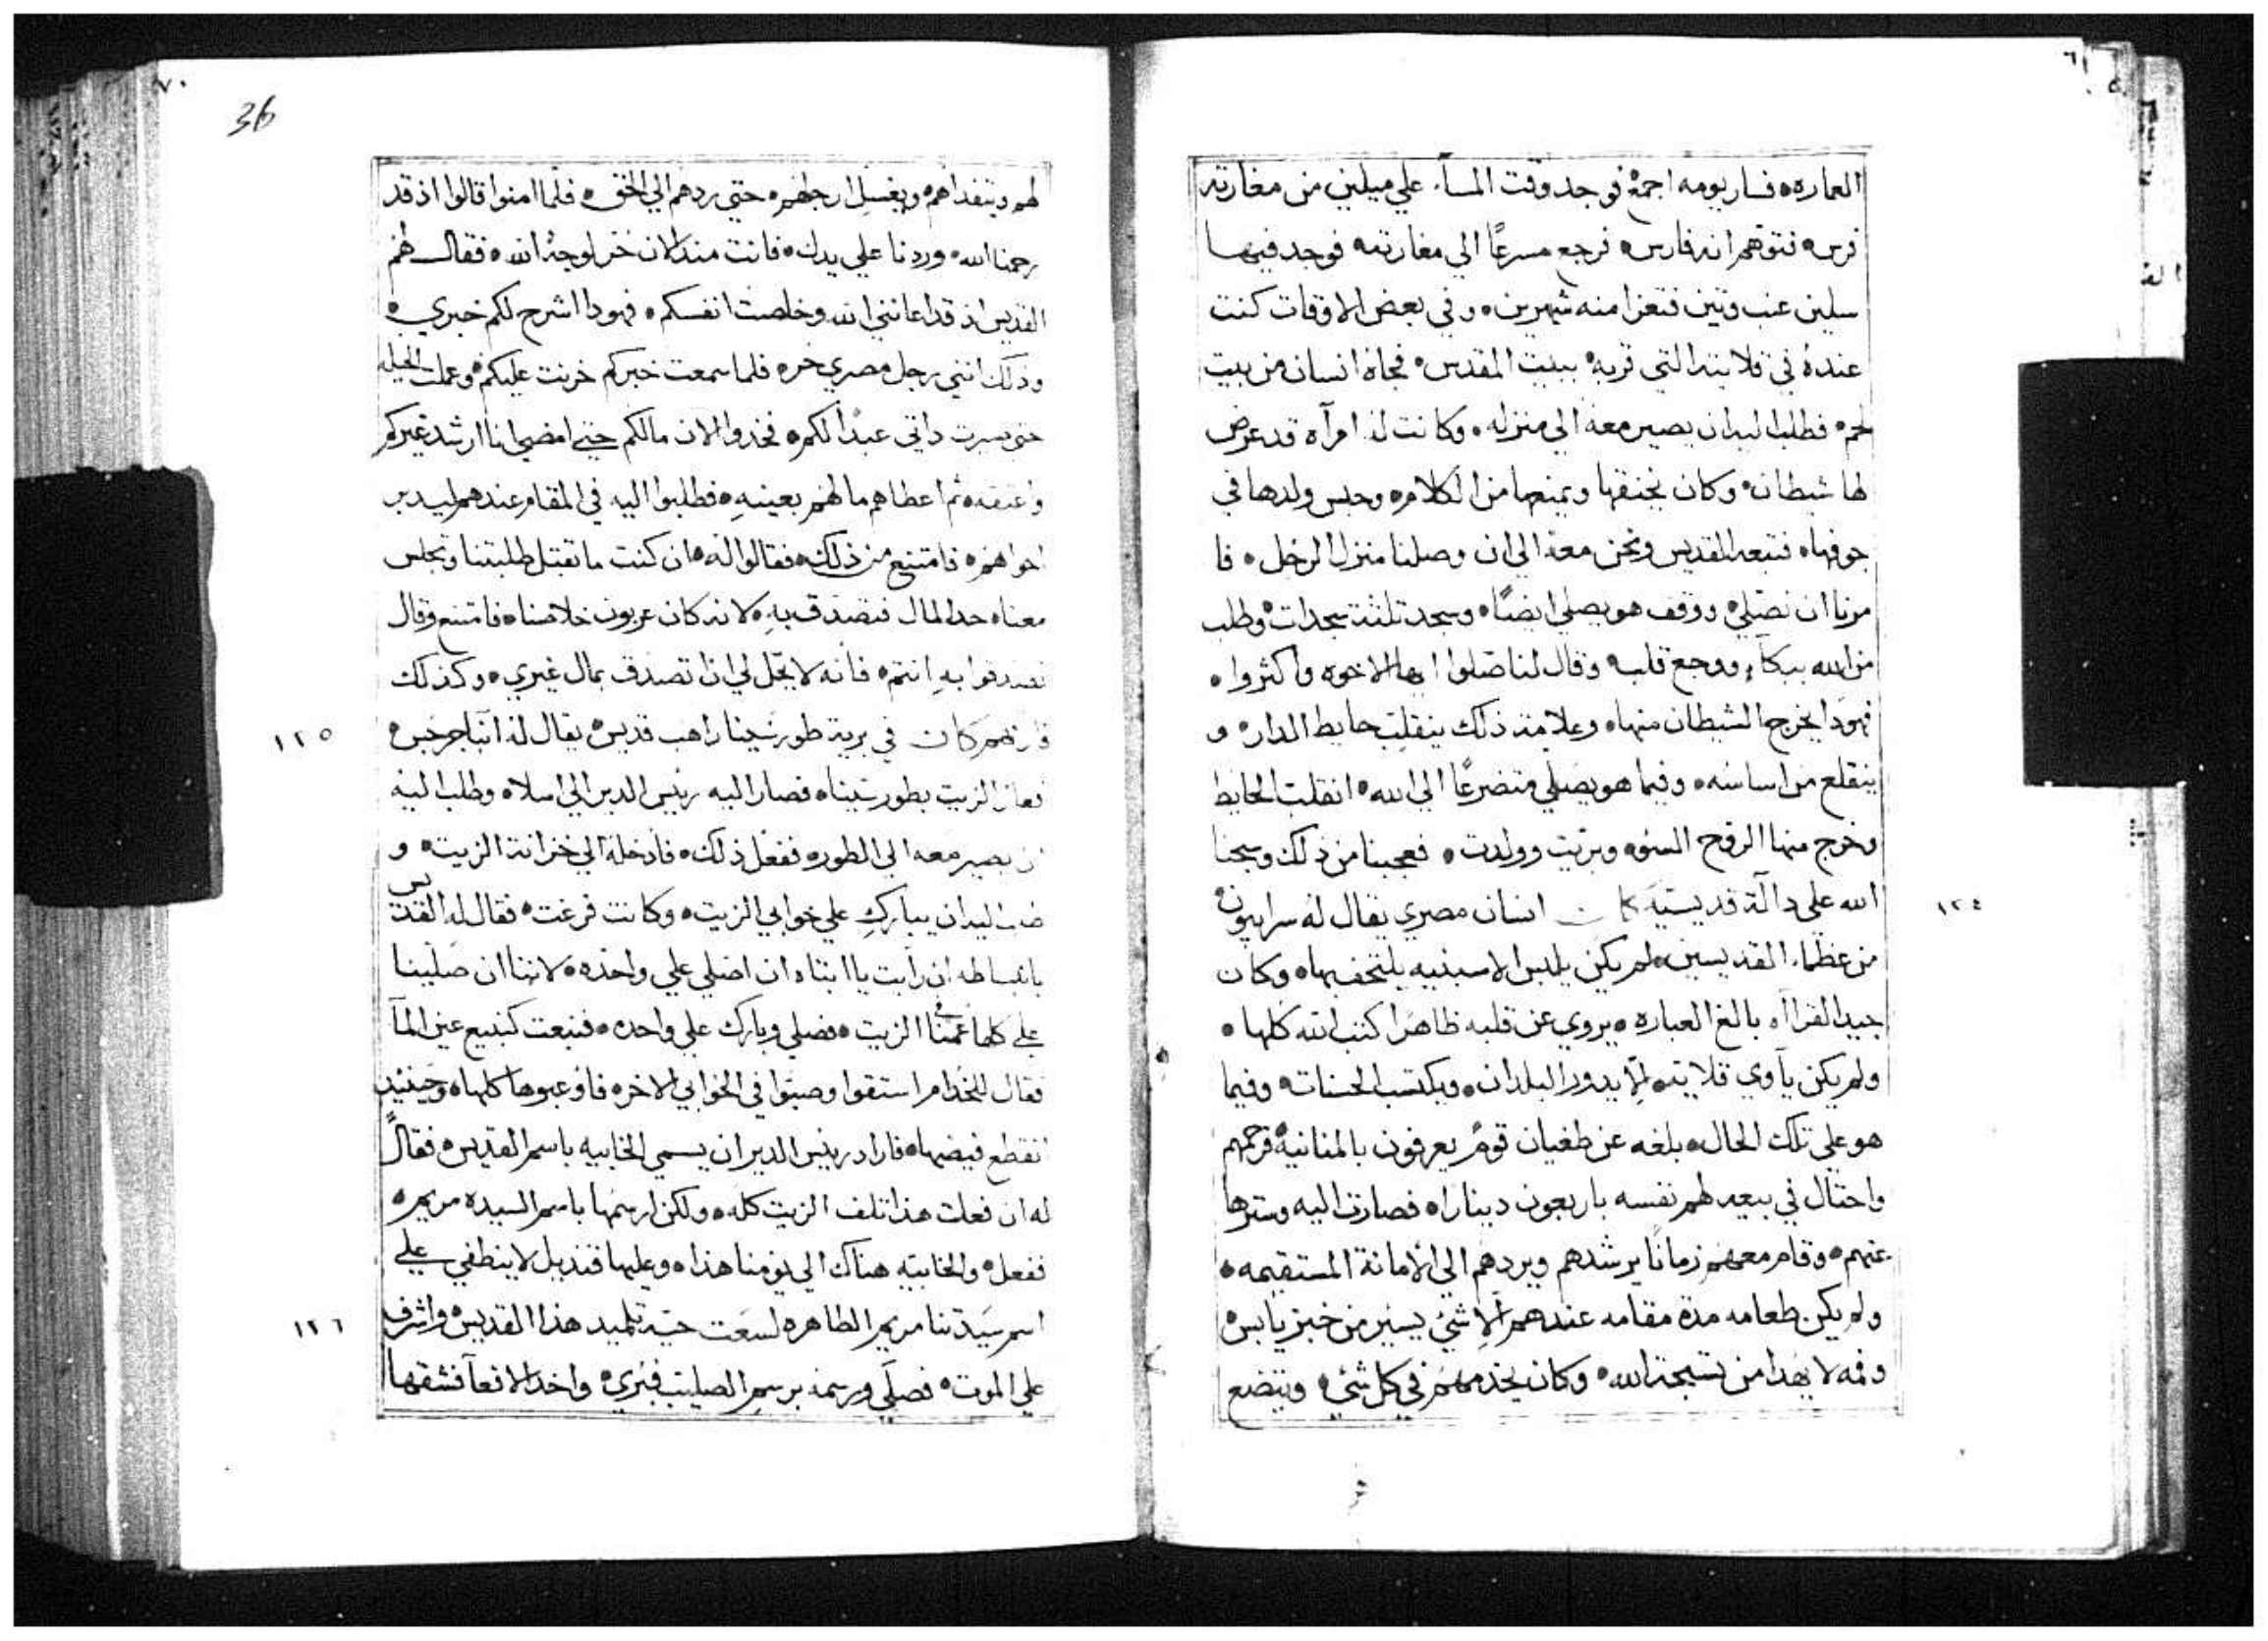 ٦١
العماره فسار يومه اجمع فوجد وقت المسآء علي ميلين من مغارته
فرس فتوهم انه فارس فرجع مسرعًا الي مغارته فوجد فيها
سلين عنب وتين فتعزا منه شهرين وفي بعض الاوقات كنت
عنده في قلايته التي قريه ببيت المقدس فجاه انسان من بيت
لحم فطلب اليه ان يصير معه الي منزله وكانت له امرآه قد عرض
لها شيطان وكان يخنقها ويمنعها من الكلام وحبس ولدها في
جوفها فتبعه القديس ونحن معه الي ان وصلنا منزل الرجل فا
مرنا ان نصلي ووقف هو يصلي ايضًا وسجد تلثة سجدات وطلب
من الله ببكاء ووجع قلب وقال لنا صلوا ايها الاخوه واكثروا
فهودا يخرج الشيطان منها وعلامة ذلك ينقلب حايط الدار و
ينقلع من اساسه وفيما هو يصلي متضرعًا الي الله انقلبت الحايط
وخرج منها الروح السوء وبريت وولدت فعجبنا من ذلك وسبحنا
الله علي دالة قديسيه كان انسان مصري يقال له سرابيون
١٢٤
من عظماء القديسين لم يكن يلبس الا سبنيه يلتحف بها وكان
جيد القرااه بالغ العباره يروي عن قلبه ظاهرا كتب الله كلها
ولم يكن يآوي قلايته لاّ يدور البلدان ويكتسب الحسنات وفيما
هو علي تلك الحال بلغه عن طغيان قوم يعرفون بالمنانية فرحمهم
واحتال في بيعه لهم نفسه باربعون دينارا فصارت اليه وسترها
عنهم وقام معهم زمانًا يرشدهم ويردهم الي الامانة المستقيمه
ولم يكن طعامه مدة مقامه عندهم الا شي يسير من خبز يابس
وفمه لا يهدا من تسبحة الله وكان يخدمهم في كل شي ويتضع
٧٠
36
لهم ويتفداهم ويغسل ارجلهم حتي ردهم الي الحق فلما امنوا قالوا اذ قد
رحمنا الله وردنا علي يدك فانت منذ الان حر لوجه الله فقال لهم
القديس اذ قد اعانني الله وخلصت انفسكم فهودا اشرح لكم خبري
وذلك انني رجل مصري حر فلما سمعت خبركم حزنت عليكم وعملت الحيله
حتي صيرت داتي عبدًا لكم فخدوا الان مالكم حتي امضي انا ارشد غيركم
واعتقه ثم اعطاهم مالهم بعينهِ فطلبوا اليه في المقام عندهم ليدبر
احواهم فامتنع من ذلك فقالوا له ان كنت ما تقبل طلبتنا وتجلس
معنا خد المال فتصدق بهِ لانه كان عربون خلاصنا فامتنع وقال
تصدقوا بهِ انتم فانه لا يحل لي ان اتصدق بمال غيري وكذلك
فارقهم كان في برية طور سينا راهب قديس يقال له انبا جرجس
١٢٥
فعاز الزيت بطور سينا فصار اليه رييس الدير الي اسلا وطلب اليه
ان يصير معه الي الطور ففعل ذلك فادخله الي خزانة الزيت و
طلب اليه ان يبارك علي خوابي الزيت وكانت فرغت فقال له القديس
بانبساطه ان رايت يا ابتاه ان اصلي علي واحده لاننا ان صلينا
علي كلها عُمنا الزيت فصلي وبارك علي واحده فنبعت كنبيع عين المآ
فقال للخدام استقوا وصبوا في الخوابي الاخر فاوعبوها كلها وحينيذ
انقطع فيضها فاراد رييس الدير ان يسمي الخابيه باسم القديس فقال
له ان فعلت هذا تلف الزيت كله ولكن ارسمها باسم السيده مريم
ففعل والخابيه هناك الي يومنا هذا وعليها قنديل لا ينطفي علي
اسم سيدتنا مريم الطاهره لسعت حية تلميد هذا القديس واشرف
١٢٦
علي الموت فصلي ورسمه برسم الصليب فبري واخد الافعآ فشقها